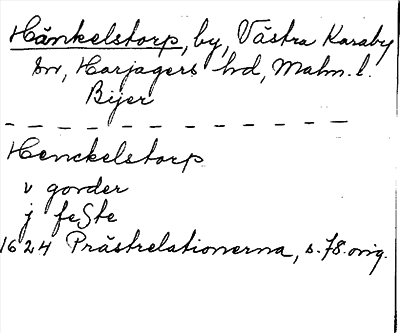 Hänkelstorp, by, Västra Karaby
sn, Harjagers hd, Malm. l.
Bijer
Henckelstorp
v gorder
j feste
1624 Prästrelationerna, s. 78. orig.